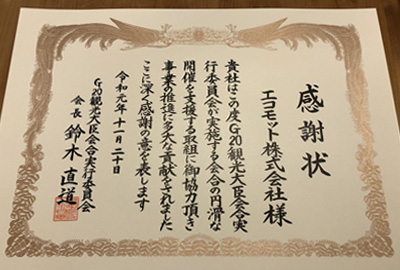 感謝状
エコモット株式会社様
貴社はこの度G20観光大臣会合実
行委員会が実施する会合の円滑な
開催を支援する取組に御協力頂き
事業の推進に多大な貢献をされました
ここに深く感謝の意を表します
令和元年十一月二十日
G20観光大臣会合実行委員会
会長 鈴木直道